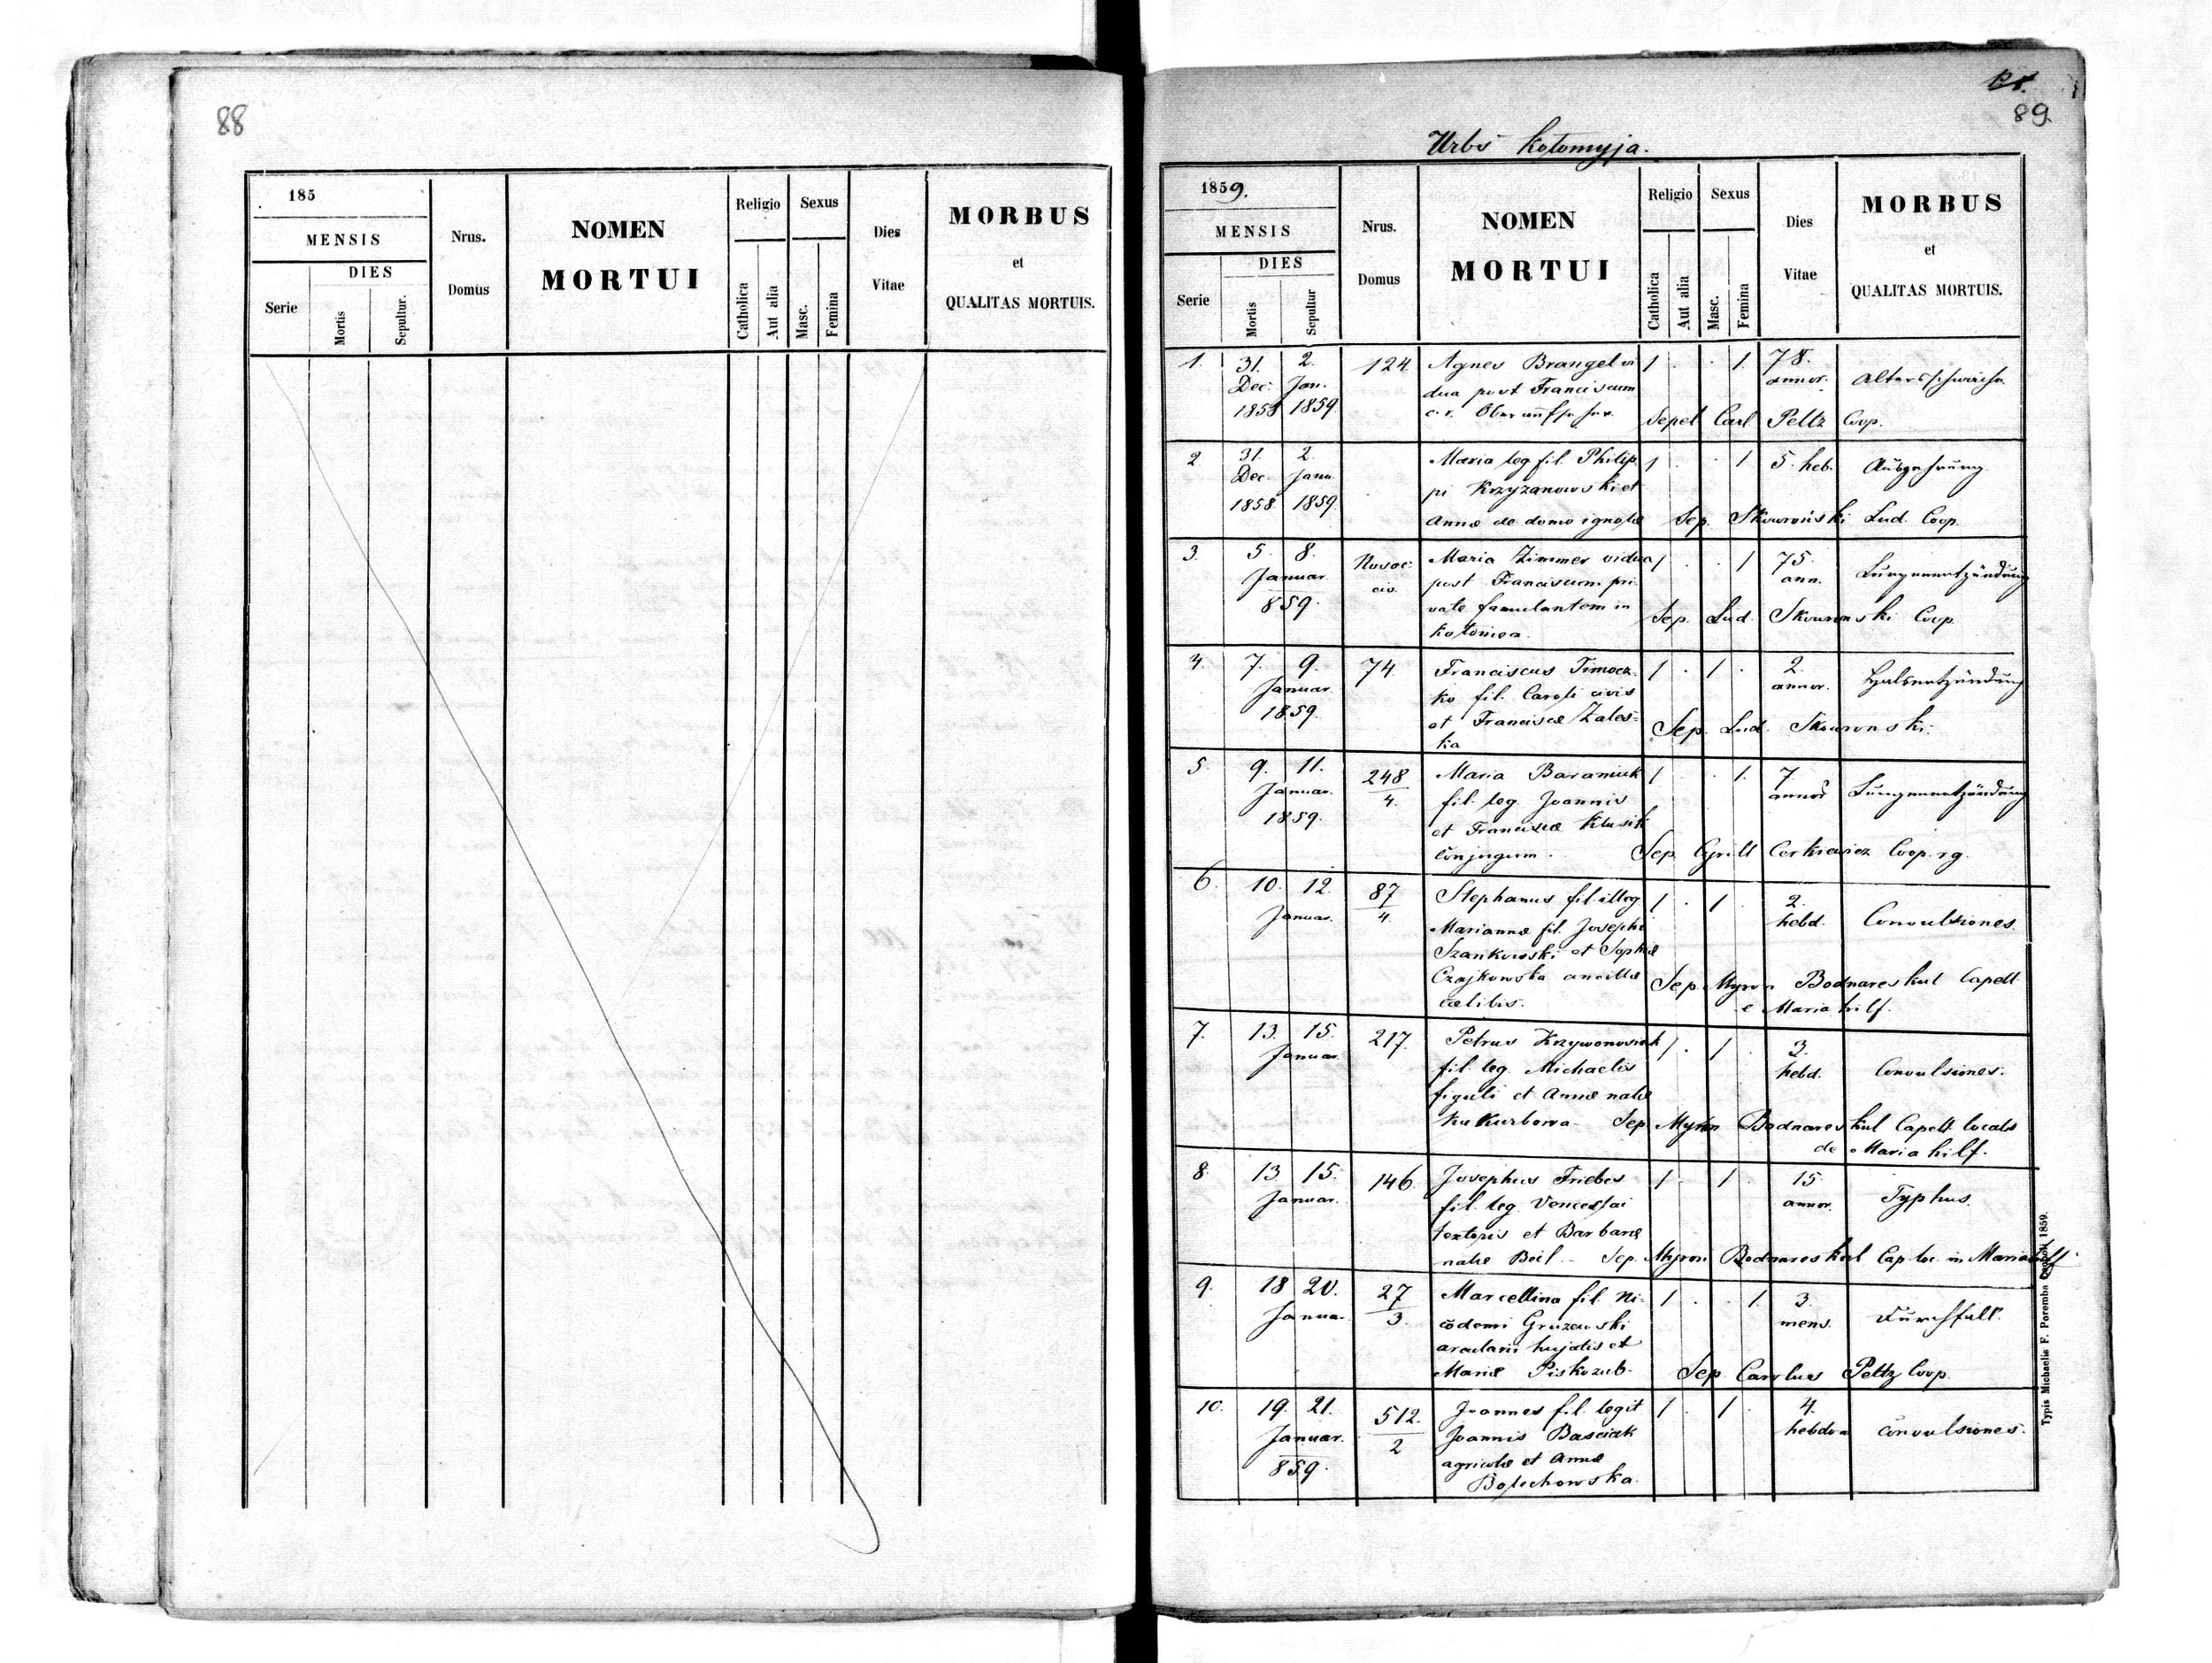 88
185
MENSIS
DIES
Serie
Mortis
Sepultur.
Nrus.
Domus
NOMEN
MORTUI
Religio
Catholica
Aut alia
Sexus
Masc.
Femina
Dies
Vitae
MORBUS
et
QUALITAS MORTUIS.
89.
Urbs Kołomyja.
1859.
MENSIS
DIES
Serie
Mortis
Sepultur
Nrus.
Domus
NOMEN
MORTUI
Religio
Catholica
Aut alia
Sexus
Masc.
Femina
Dies
Vitae
MORBUS
et
QUALITAS MORTUIS.
1. 31. 2. 124. Agnes Brangel vi 1 . . 1. 78.
Dec: Jan. dua post Franciscum annor. Altersschwäche
1858 1859. c. r. Sepel Carl Peltz Coop.
2 31. 2. Maria leg fil. Philip 1 . . 1 5. heb. Auszehrung
Dec. Janu pi Krzyzanowski et
1858. 1859. Annæ de domo ignotæ Sep. Skowroński Lud. Coop.
3. 5. 8. Maria Zimmer vidua 1 . . 1 75.
Januar. post Franciscum pri ann. Lungenentzündung
859. vate famulantem in Sep. Lud. Skowronski Coop.
Kolomea.
4. 7. 9. 74. Franciscus Timocz 1 . 1 . 2.
Januar. ko fil. Caroli civis annor. Halsentzündung
1859. et Franciscæ Zales=
ka Sep. Lud. Skowronski.
5. 9. 11. 248/4. Maria Baraniuk 1 . . 1. 7
Januar. fil. leg. Joannis Lungenentzündung
1859. et Franciscæ Klusik
conjugum. Sep. Cyrill Cerkiewicz Coop. rg.
6. 10. 12. 87/4. Stephanus fil. illeg. 1 . 1 . 2.
Januar. Mariannæ fil. Josephi hebd. Convulsiones.
Szankowski et Sophiæ
Czajkowska ancillæ Sep. Myron Bodnareskul Capell.
cælibis. e Mariahilf.
7. 13. 15. 217. Petrus Krzywonosiuk 1 . 1 . 3.
Januar. fil. leg. Michaelis hebd. Convulsiones.
figuli et Annæ natæ
Kukurbowa Sep. Myron Bodnareskul Capell. localis
de Mariahilf.
8. 13 15. 146. Josephus Friebes 1 . 1 . 15
Januar. fil. leg. Venceslai annor. Typhus.
textoris et Barbaræ
natæ Beil Sep. Myron Bodnareskul Cap. loc. in Mariahilf
9. 18 20. 27/3. Marcellina fil. Ni= 1 . . 1. 3.
Januar. codemi Gruzewski mens. Durchfall.
arcularii hujatis et
Mariæ Piskozub. Sep. Carolus Peltz Coop.
10. 19. 21. 512./2 Joannes fil. legit 1 . 1 . 4.
Januar. Joannis Basciak hebdom convulsiones.
859. agricolæ et Annæ
Bolechowska.
Typis Michaelis F. Poremba Leopoli 1859.